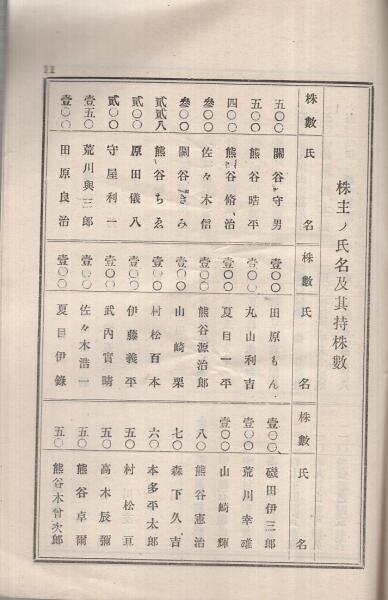 11
株主ノ氏名及其持株數
株數 氏名
五〇〇 關谷守男
五〇〇 熊谷晧平
四〇〇 熊谷脩治
參〇〇 佐々木信
參〇〇 關谷きみ
貳貳八 熊谷ちゑ
貳〇〇 原田儀八
貳〇〇 守屋利一
壹五〇 荒川與三郎
壹〇〇 田原良治
株數 氏名
壹〇〇 田原もん
壹〇〇 丸山利吉
壹〇〇 夏目一平
壹〇〇 熊谷源治郎
壹〇〇 山崎栗
壹〇〇 村松百本
壹〇〇 伊藤義平
壹〇〇 武內實晴
壹〇〇 佐々木浩一
壹〇〇 夏目伊錄
株數 氏名
壹〇〇 磯田伊三郎
壹〇〇 荒川幸雄
壹〇〇 山崎輝
八〇 熊谷憲治
七〇 森下久吉
六〇 本多平太郎
五〇 村松亘
五〇 高木辰彌
五〇 熊谷卓爾
五〇 熊谷木曾次郎